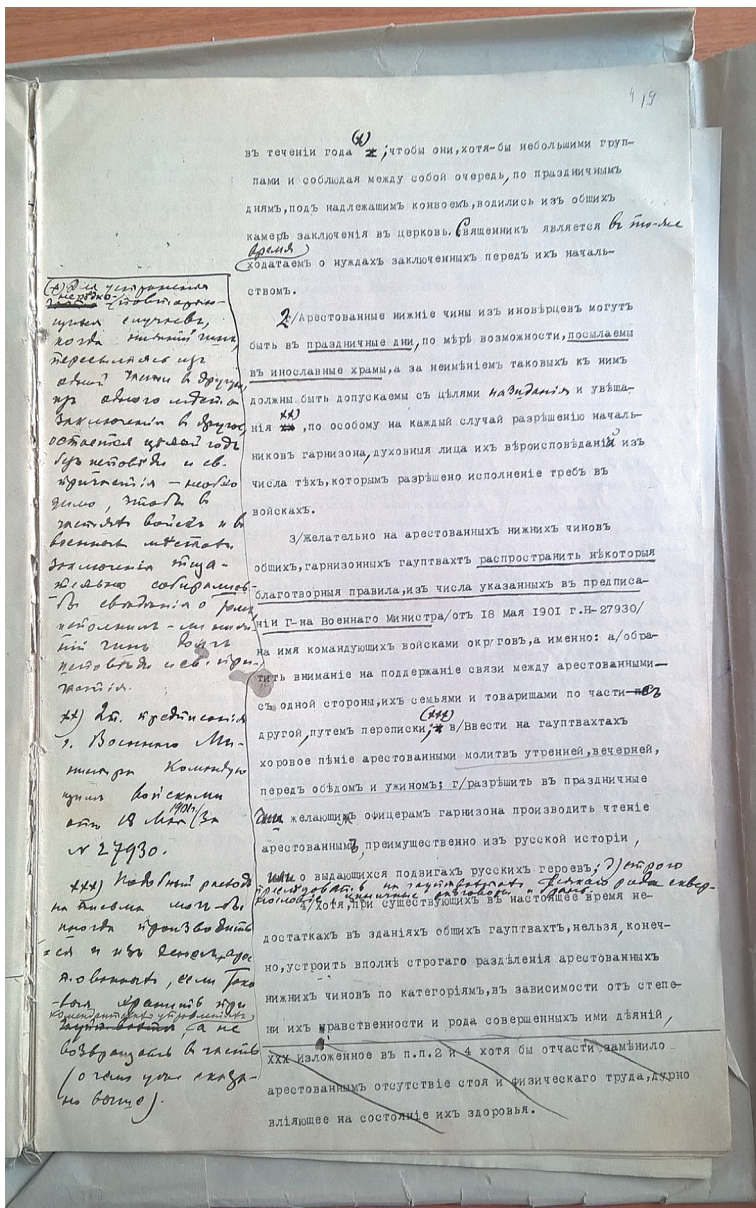 419
въ теченіи года (х) ;чтобы они,хотя-бы небольшими груп-
пами и соблюдая между собой очередь,по праздничнымъ
днямъ,подъ надлежащимъ конвоемъ,водились изъ общихъ
камеръ заключенія въ церковь. Священникъ является въ то-же
время
ходатаемъ о нуждахъ заключенныхъ передъ ихъ началь-
ствомъ.
2/Арестованные нижніе чины изъ иновѣрцевъ могутъ
быть въ праздничные дни,по мѣрѣ возможности,посылаемы
въ инославные храмы,а за неимѣніемъ таковыхъ къ нимъ
должны быть допускаемы съ цѣлями назиданія и увѣща-
нія хх) ,по особому на каждый случай разрѣшенію началь-
никовъ гарнизона,духовныя лица ихъ вѣроисповѣданій изъ
числа тѣхъ,которымъ разрѣшено исполненіе требъ въ
войскахъ.
3/Желательно на арестованныхъ нижнихъ чиновъ
общихъ,гарнизонныхъ гауптвахтъ распространить нѣкоторыя
благотворныя правила,изъ числа указанныхъ въ предписа-
ніи Г-на Военнаго Министра/отъ 18 Мая 1901 г.Н-27930/
на имя командующихъ войсками округовъ,а именно: а/обра-
тить вниманіе на поддержаніе связи между арестованными—
съ одной стороны,ихъ семьями и товарищами по части—съ
другой,путемъ переписки; (ххх) в/Ввести на гауптвахтахъ
хоровое пѣніе арестованными молитвъ утренней,вечерней,
передъ обѣдомъ и ужиномъ; г/разрѣшить въ праздничные
дни желающимъ офицерамъ гарнизона производить чтеніе
арестованнымъ,преимущественно изъ русской исторіи,
или о выдающихся подвигахъ русскихъ героевъ; д) строго
преслѣдовать на гауптвахтахъ всякаго рода сквер-
нословіе, циничные разговоры и
4/Хотя,при существующихъ въ настоящее время не-
достаткахъ въ зданіяхъ общихъ гауптвахтъ,нельзя,конеч-
но,устроить вполнѣ строгаго раздѣленія арестованныхъ
нижнихъ чиновъ по категоріямъ,въ зависимости отъ степе-
ни ихъ нравственности и рода совершенныхъ ими дѣяній,
ХХХ изложенное въ п.п.2 и 4 хотя бы отчасти замѣнило
арестованнымъ отсутствіе строя и физическаго труда,дурно
вліяющее на состояніе ихъ здоровья.
(х) Для устраненія
нерѣдко повторяю-
щихся случаевъ,
когда нижній чинъ,
пересылаясь изъ
одной части в другую,
изъ одного мѣста
заключенія в другое,
остается цѣлый годъ
безъ исповѣди и св.
причастія — необхо
димо, чтобы в
частяхъ войскъ и в
военныхъ мѣстахъ
заключенія тща-
тельно собирались-
бы свѣдѣнія о
исполнилъ-ли ниж-
ній чинъ долгъ
исповѣди и св. при-
частія.
хх) Ст. предписанія
г. Военнаго Ми-
нистра Командую
щимъ войсками
отъ 18 Мая 1901г. За
№ 27930.
ххх) Подобный расходъ
на письма могъ-бы
иногда производить
ся и изъ денегъ арес
тованныхъ, если тако
выя хранить при
комендантскихъ управленіяхъ,
а не
возвращать въ часть
(о чемъ уже сказа-
но выше).